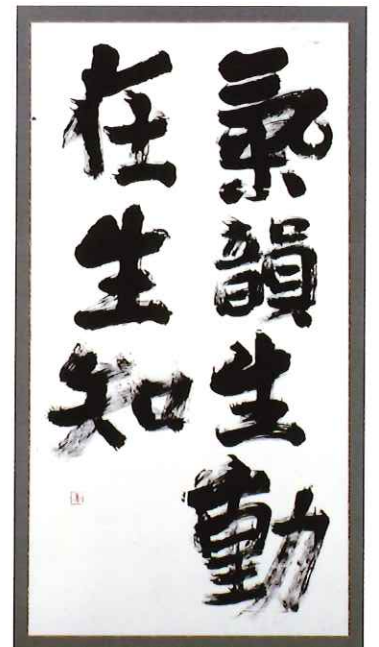 氣韻生動
在生知